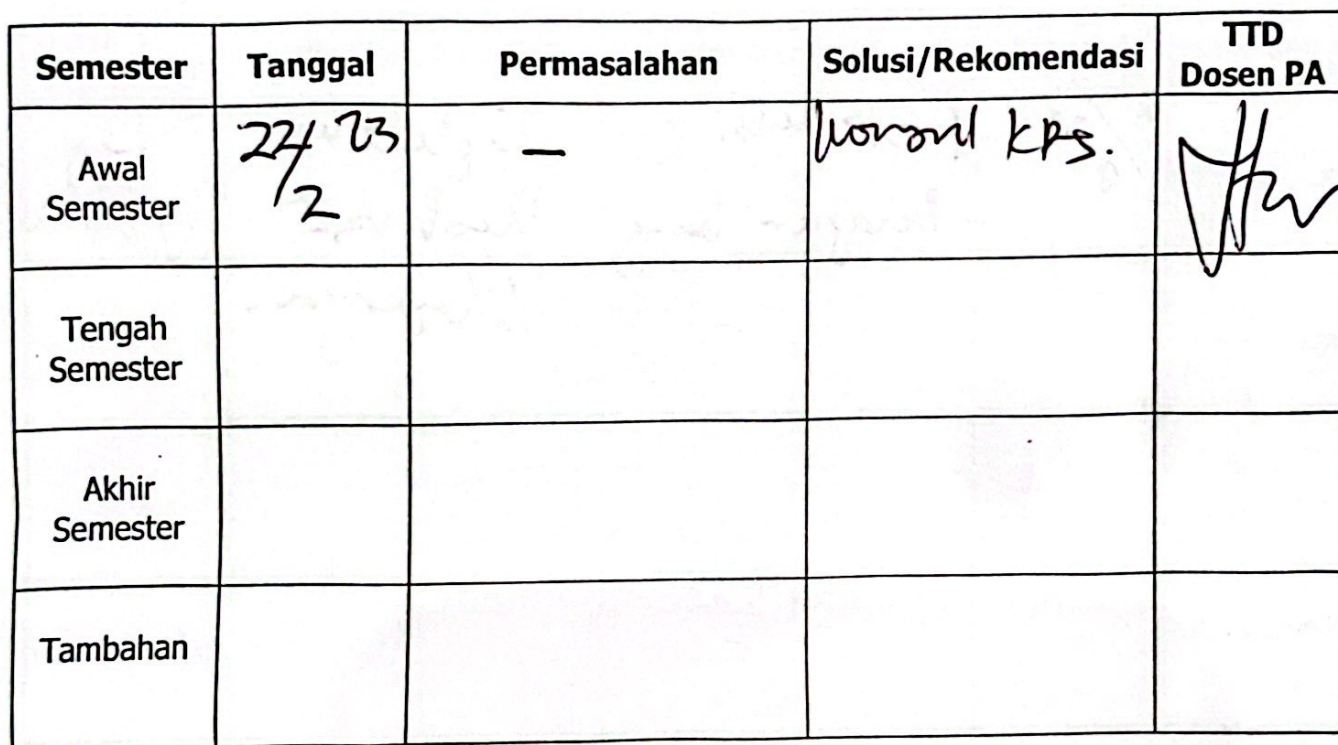 Semester Tanggal Permasalahan Solusi/Rekomendasi TTD
Dosen PA
Awal
Semester
22/2 23
—
Konsul KRS.
Tengah
Semester
Akhir
Semester
Tambahan